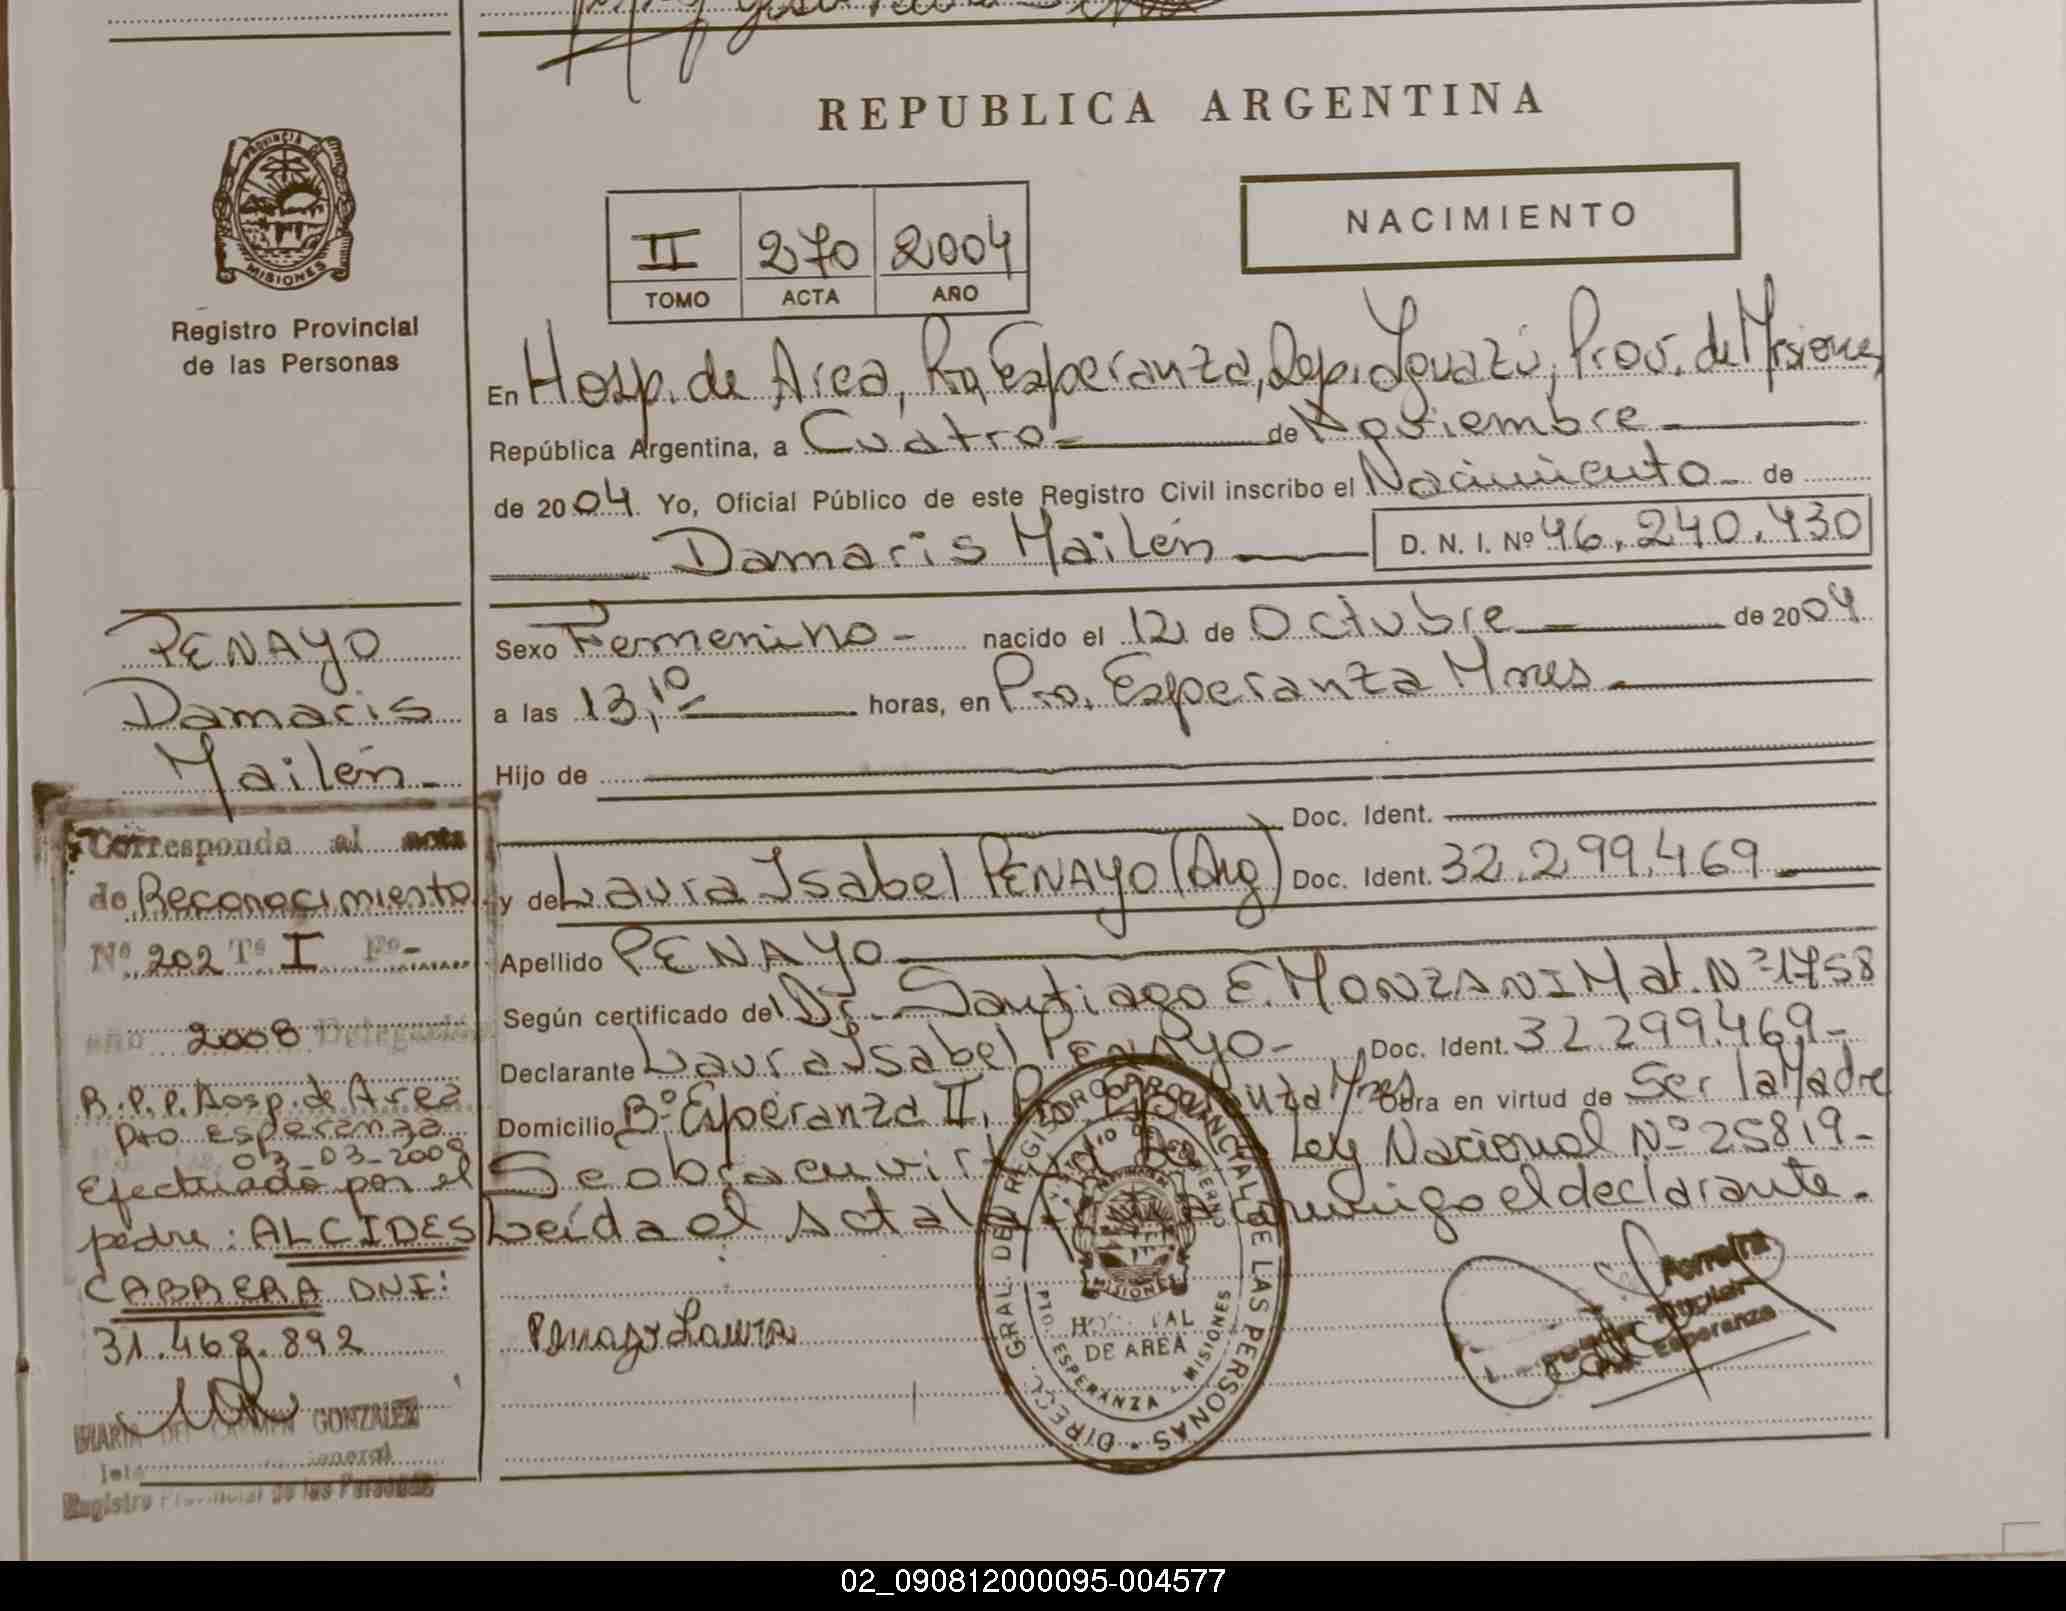 REPUBLICA ARGENTINA
PROVINCIA DE
MISIONES
Registro Provincial
de las Personas
NACIMIENTO
II 270 2004
TOMO ACTA AÑO
En Hosp. de Area, Pto. Esperanza, Dep. Iguazú, Prov. de Misiones
República Argentina, a Cuatro de Noviembre
de 2004 Yo, Oficial Público de este Registro Civil inscribo el Nacimiento de
Damaris Mailén D. N. I. Nº 46.240.430
Sexo Femenino - nacido el 12 de Octubre de 2004
a las 13,10 horas, en Pto. Esperanza Mnes
Hijo de
Doc. Ident.
y de Laura Isabel PENAYO (Arg) Doc. Ident. 32.299.469
Apellido PENAYO
Según certificado del Dr. Santiago E. MONZANI Mat. Nº 1758
Declarante Laura Isabel Penayo - Doc. Ident. 32.299.469 -
Domicilio Bº Esperanza II, Mnes Obra en virtud de Ser la Madre
Se obra en virtud Ley Nacional Nº 25819 -
Leída el Acta conmigo el declarante.
Penayo Laura
PENAYO
Damaris
Mailén -
Corresponde al acta
de Reconocimiento
Nº 202 Tº I Fº -
año 2008 Delegación
R.P.P. Hosp. de Area
Pto Esperanza
03-03-2008
Efectuado por el
padre: ALCIDES
CABRERA DNI:
31.468.892
MARIA DEL CARMEN GONZALEZ
General
Registro Provincial de las Personas
DIRECC. GRAL. DEL REGISTRO PROVINCIAL DE LAS PERSONAS
MISIONES
HOSPITAL
DE AREA
PTO. ESPERANZA - MISIONES
Ferreira
Titular
Esperanza
02_090812000095-004577